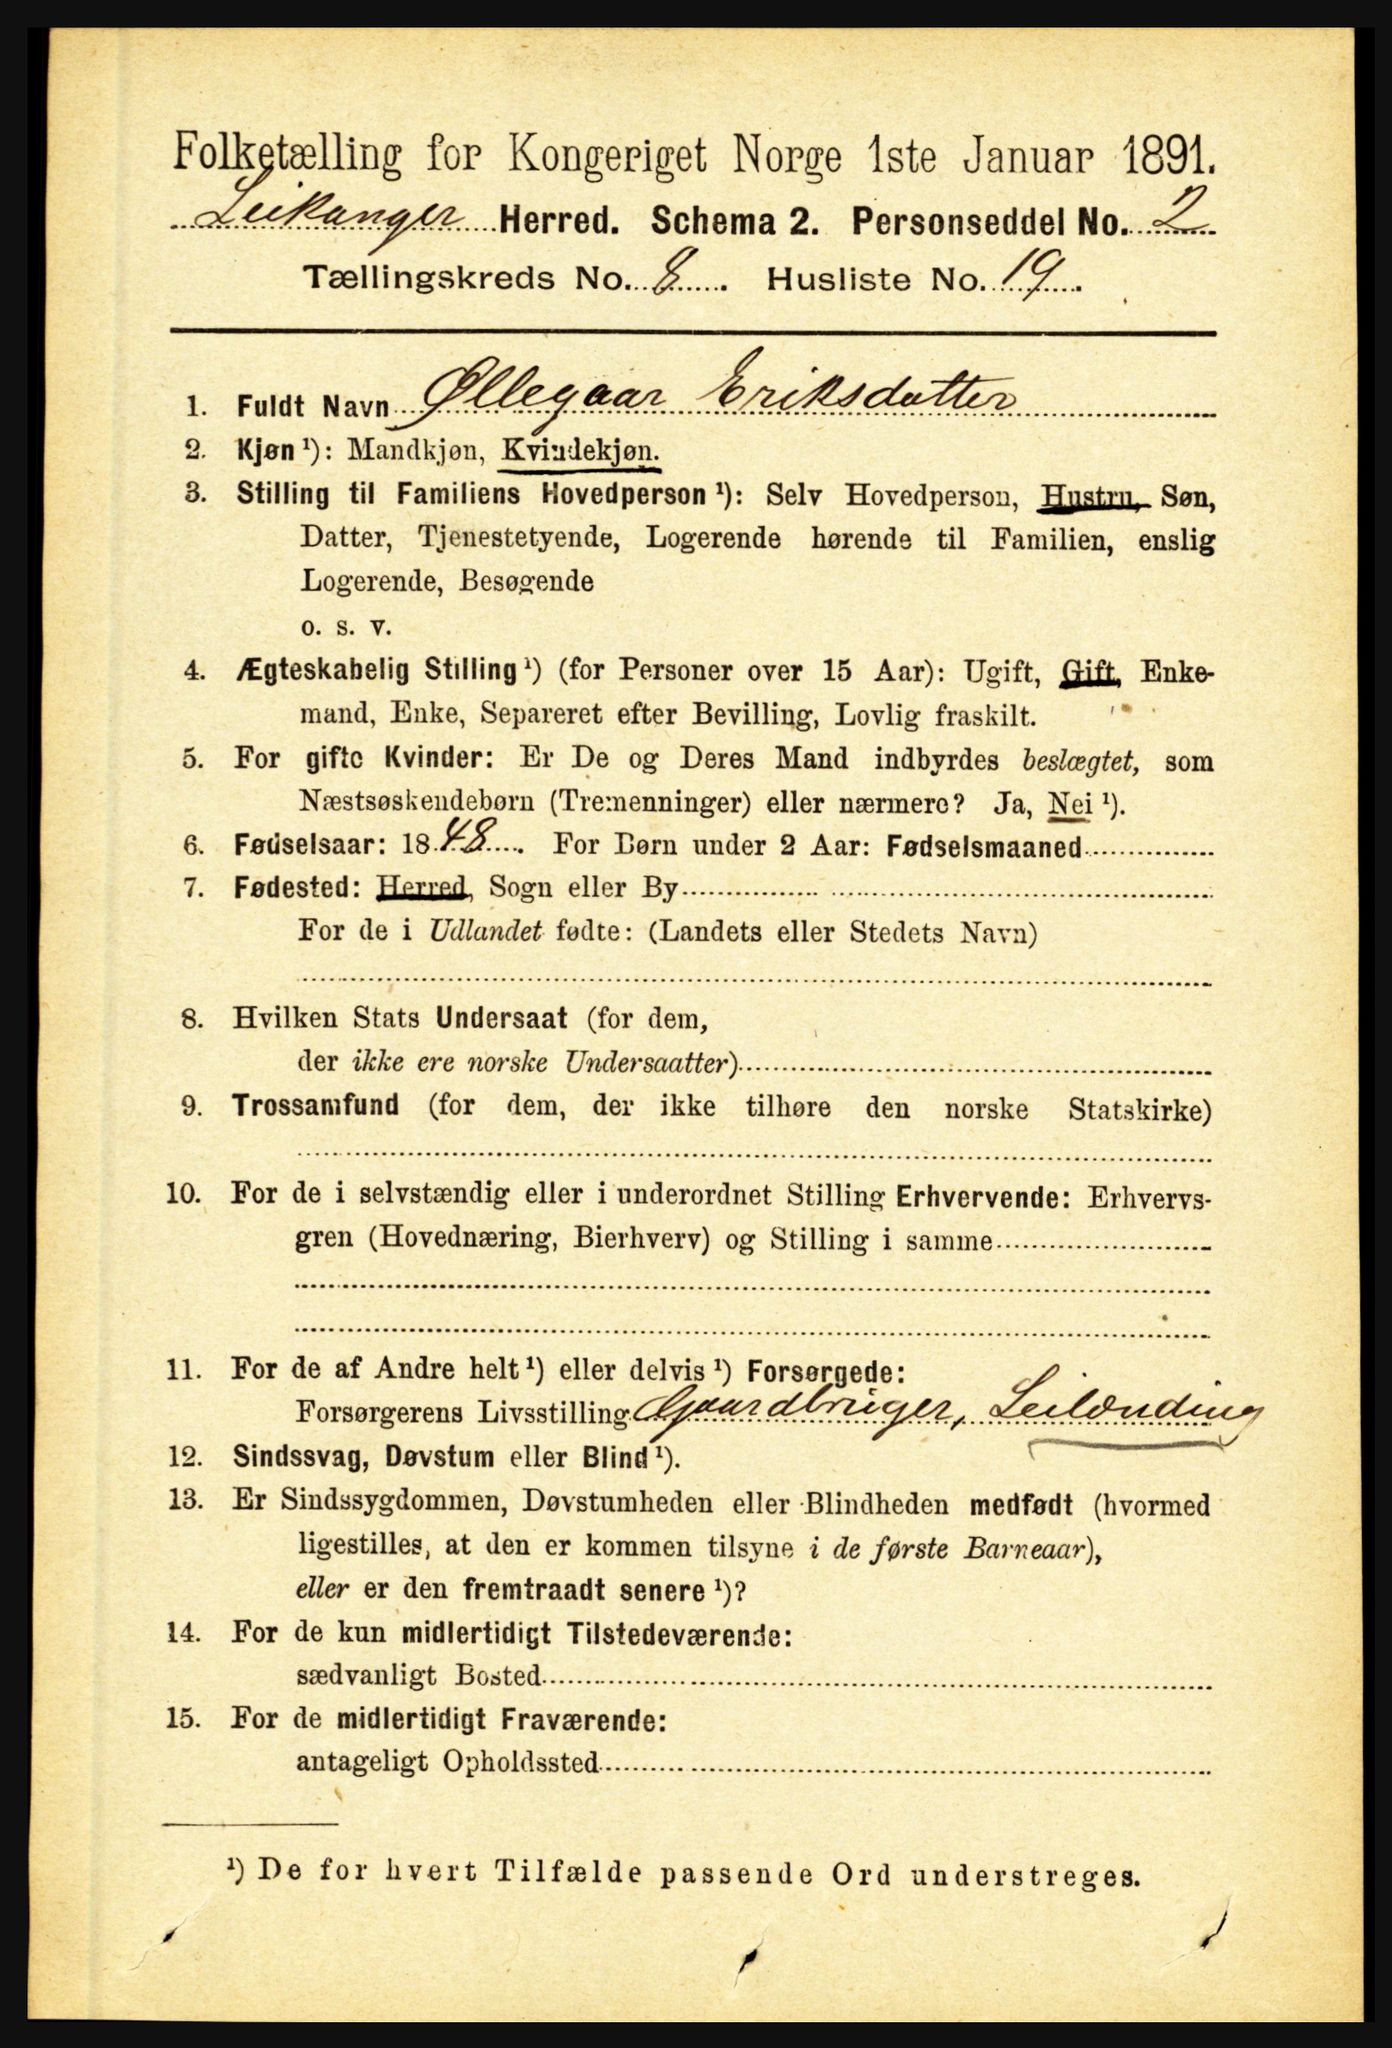 Folketælling for Kongeriget Norge 1ste Januar 1891.
Leikanger Herred. Schema 2. Personseddel No. 2
Tællingskreds No. 8. Husliste No. 19.
1. Fuldt Navn Øllegaar Eriksdatter
2. Kjøn ¹): Mandkjøn, Kvindekjøn.
3. Stilling til Familiens Hovedperson ¹): Selv Hovedperson, Hustru, Søn,
Datter, Tjenestetyende, Logerende hørende til Familien, enslig
Logerende, Besøgende
o. s. v.
4. Ægteskabelig Stilling ¹) (for Personer over 15 Aar): Ugift, Gift, Enke-
mand, Enke, Separeret efter Bevilling, Lovlig fraskilt.
5. For gifte Kvinder: Er De og Deres Mand indbyrdes beslægtet, som
Næstsøskendebørn (Tremenninger) eller nærmere? Ja, Nei ¹).
6. Fødselsaar: 1848. For Børn under 2 Aar: Fødselsmaaned
7. Fødested: Herred, Sogn eller By
For de i Udlandet fødte: (Landets eller Stedets Navn)
8. Hvilken Stats Undersaat (for dem,
der ikke ere norske Undersaatter)
9. Trossamfund (for dem, der ikke tilhøre den norske Statskirke)
10. For de i selvstændig eller i underordnet Stilling Erhvervende: Erhvervs-
gren (Hovednæring, Bierhverv) og Stilling i samme
11. For de af Andre helt ¹) eller delvis ¹) Forsørgede:
Forsørgerens Livsstilling Gaardbruger, Leilænding
12. Sindssvag, Døvstum eller Blind ¹).
13. Er Sindssygdommen, Døvstumheden eller Blindheden medfødt (hvormed
ligestilles, at den er kommen tilsyne i de første Barneaar),
eller er den fremtraadt senere ¹)?
14. For de kun midlertidigt Tilstedeværende:
sædvanligt Bosted
15. For de midlertidigt Fraværende:
antageligt Opholdssted
¹) De for hvert Tilfælde passende Ord understreges.